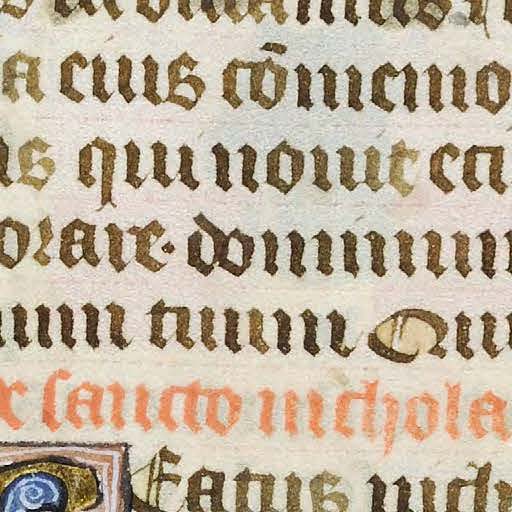 a eius cōmemo
us qui nouit ca
orare. dominum
num tuum Qui
sancto nichola
Beatus nich